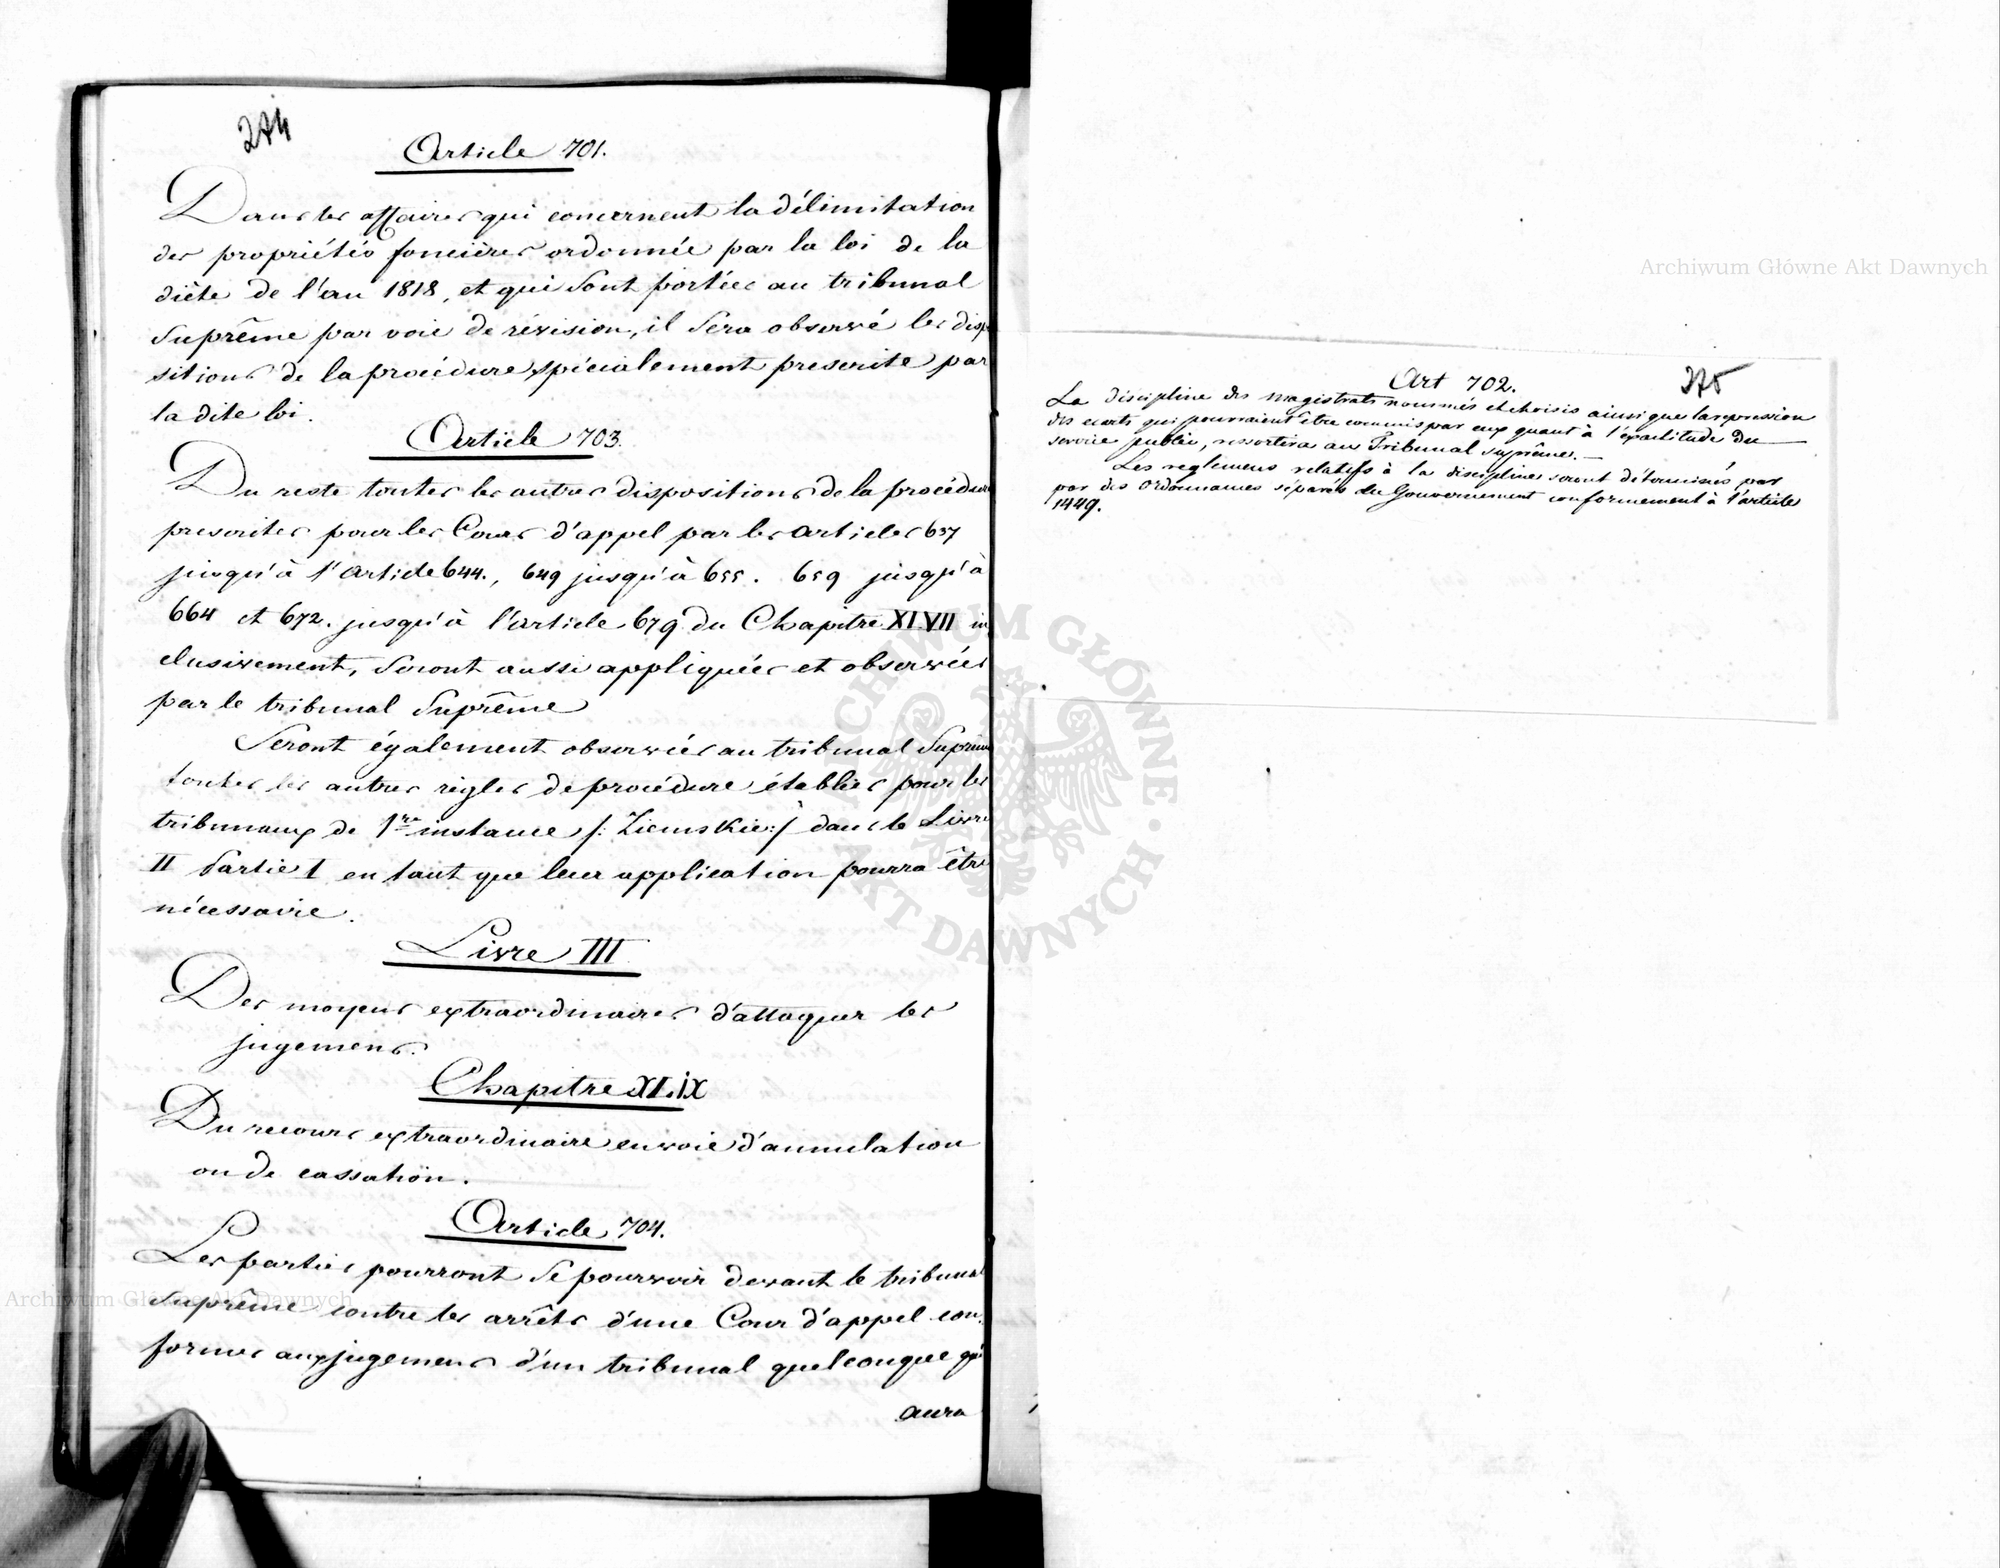 274
Article 701.
Dans les affaires qui concernent la délimitation
des propriétés foncières ordonnée par la loi de la
diète de l'an 1818, et qui sont portées au tribunal
Suprême par voie de révision, il sera observé les dispo
sitions de la procédure spécialement prescrite par
la dite loi.
Article 703.
Du reste toutes les autres dispositions de la procédure
prescrites pour les Cours d'appel par les articles 637
jusqu'à l'article 644., 649 jusqu'à 655. 659 jusqu'à
664 et 672. jusqu'à l'article 679 du Chapitre XLVII in
clusivement, seront aussi appliquées et observées
par le tribunal Suprême
Seront également observées au tribunal Suprême
toutes les autres règles de procédure établies pour les
tribunaux de 1re instance /: Ziemskie :/ dans le Livre
II Partie I en tant que leur application pourra être
nécessaire.
Livre III
Des moyens extraordinaires d'attaquer les
jugemens.
Chapitre XLIX
Du recours extraordinaire en voie d'annulation
ou de cassation.
Article 704.
Les parties pourront se pourvoir devant le tribunal
Suprême contre les arrêts d'une Cour d'appel con
formes aux jugemens d'un tribunal quelconque qui
aura
Art 702.
375
La discipline des magistrats nommés et choisis ainsi que la repression
des ecarts qui pourraient être commis par eux quant à l'exactitude du
service public, ressortira au Tribunal suprême.
Les reglemens relatifs à la discipline seront déterminés par
par des Ordonnances séparés du Gouvernement conformement à l'article
1449.
Archiwum Główne Akt Dawnych
Archiwum Główne Akt Dawnych
ARCHIWUM GŁÓWNE · AKT DAWNYCH ·